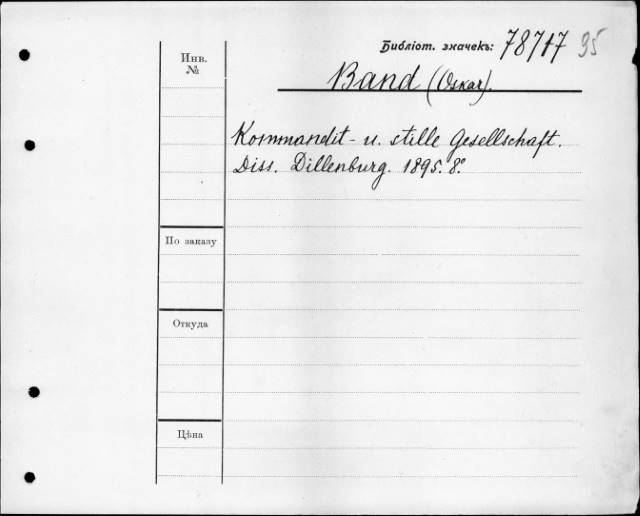 Библіот. значекъ: 78717 95
Инв. №
Band (Oskar).
Kommandit- u. stille Gesellschaft.
Diss. Dillenburg. 1895. 8º.
По заказу
Откуда
Цѣна